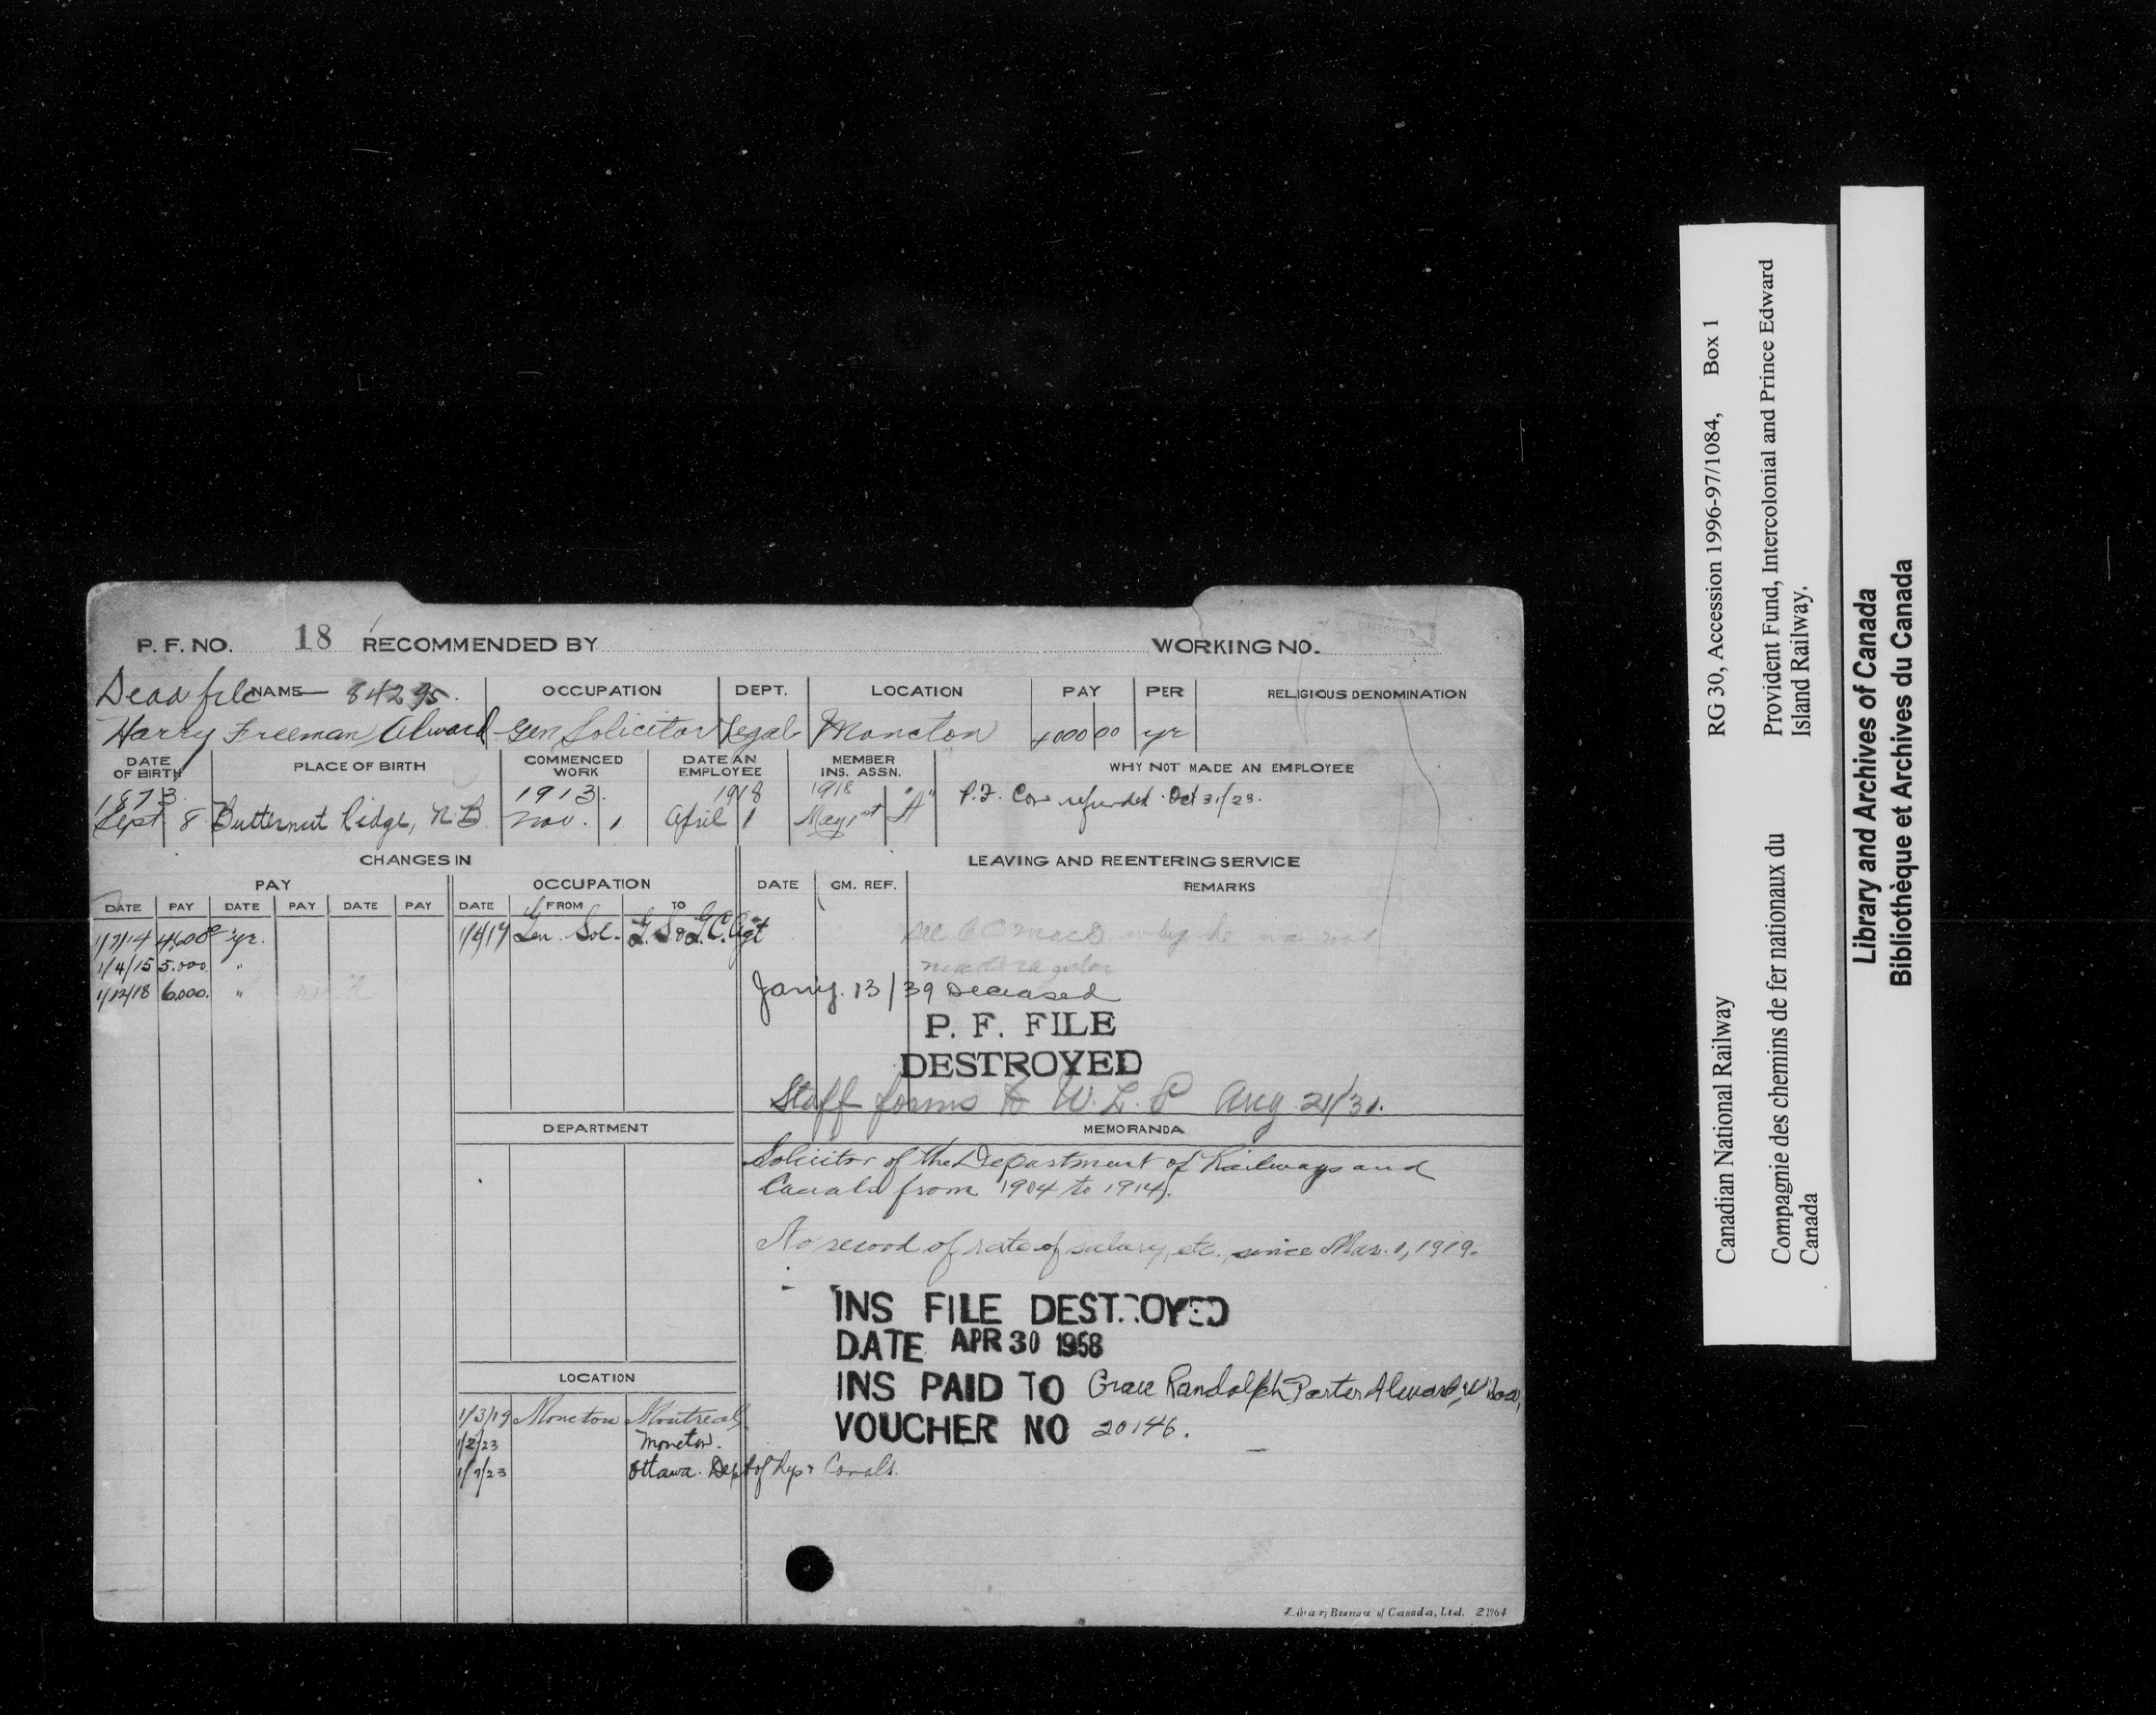 P. F. NO. 18 RECOMMENDED BY WORKING NO.
Dead file NAME 84295.
OCCUPATION DEPT. LOCATION PAY PER RELIGIOUS DENOMINATION
Harry Freeman Alward Gen Solicitor Legal Moncton 4000 00 yr
DATE OF BIRTH PLACE OF BIRTH COMMENCED WORK DATE AN EMPLOYEE MEMBER INS. ASSN. WHY NOT MADE AN EMPLOYEE
1873. 1913. 1918 1918 "A" P.F. Con refunded Oct 31/23.
Sept 8 Butternut Ridge, N.B. Nov. 1. April 1 May 1st
CHANGES IN LEAVING AND REENTERING SERVICE
PAY OCCUPATION DATE GM. REF. REMARKS
DATE PAY DATE PAY DATE PAY DATE FROM TO
1/7/14 4,600 yr. 1/4/19 Gen. Sol. G.S. & G.C. Agt
1/4/15 5.000. "
1/12/18 6000. " Jan'y. 13/39 Deceased
P. F. FILE
DESTROYED
Staff forms to W.L.P Aug 21/31.
DEPARTMENT MEMORANDA
Solicitor of the Department of Railways and
Canals from 1904 to 1914.
No record of rate of salary, etc., since Mar. 1, 1919.
INS FILE DESTROYED
DATE APR 30 1958
LOCATION
INS PAID TO Grace Randolph Porter Alward, Widow,
1/3/19 Moncton Montreal
VOUCHER NO 20146.
1/2/23 Moncton.
1/7/23 Ottawa. Dept of Rys & Canals.
Library Bureau of Canada, Ltd. 21964
Canadian National Railway RG 30, Accession 1996-97/1084, Box 1
Compagnie des chemins de fer nationaux du Provident Fund, Intercolonial and Prince Edward
Canada Island Railway.
Library and Archives of Canada
Bibliothèque et Archives du Canada